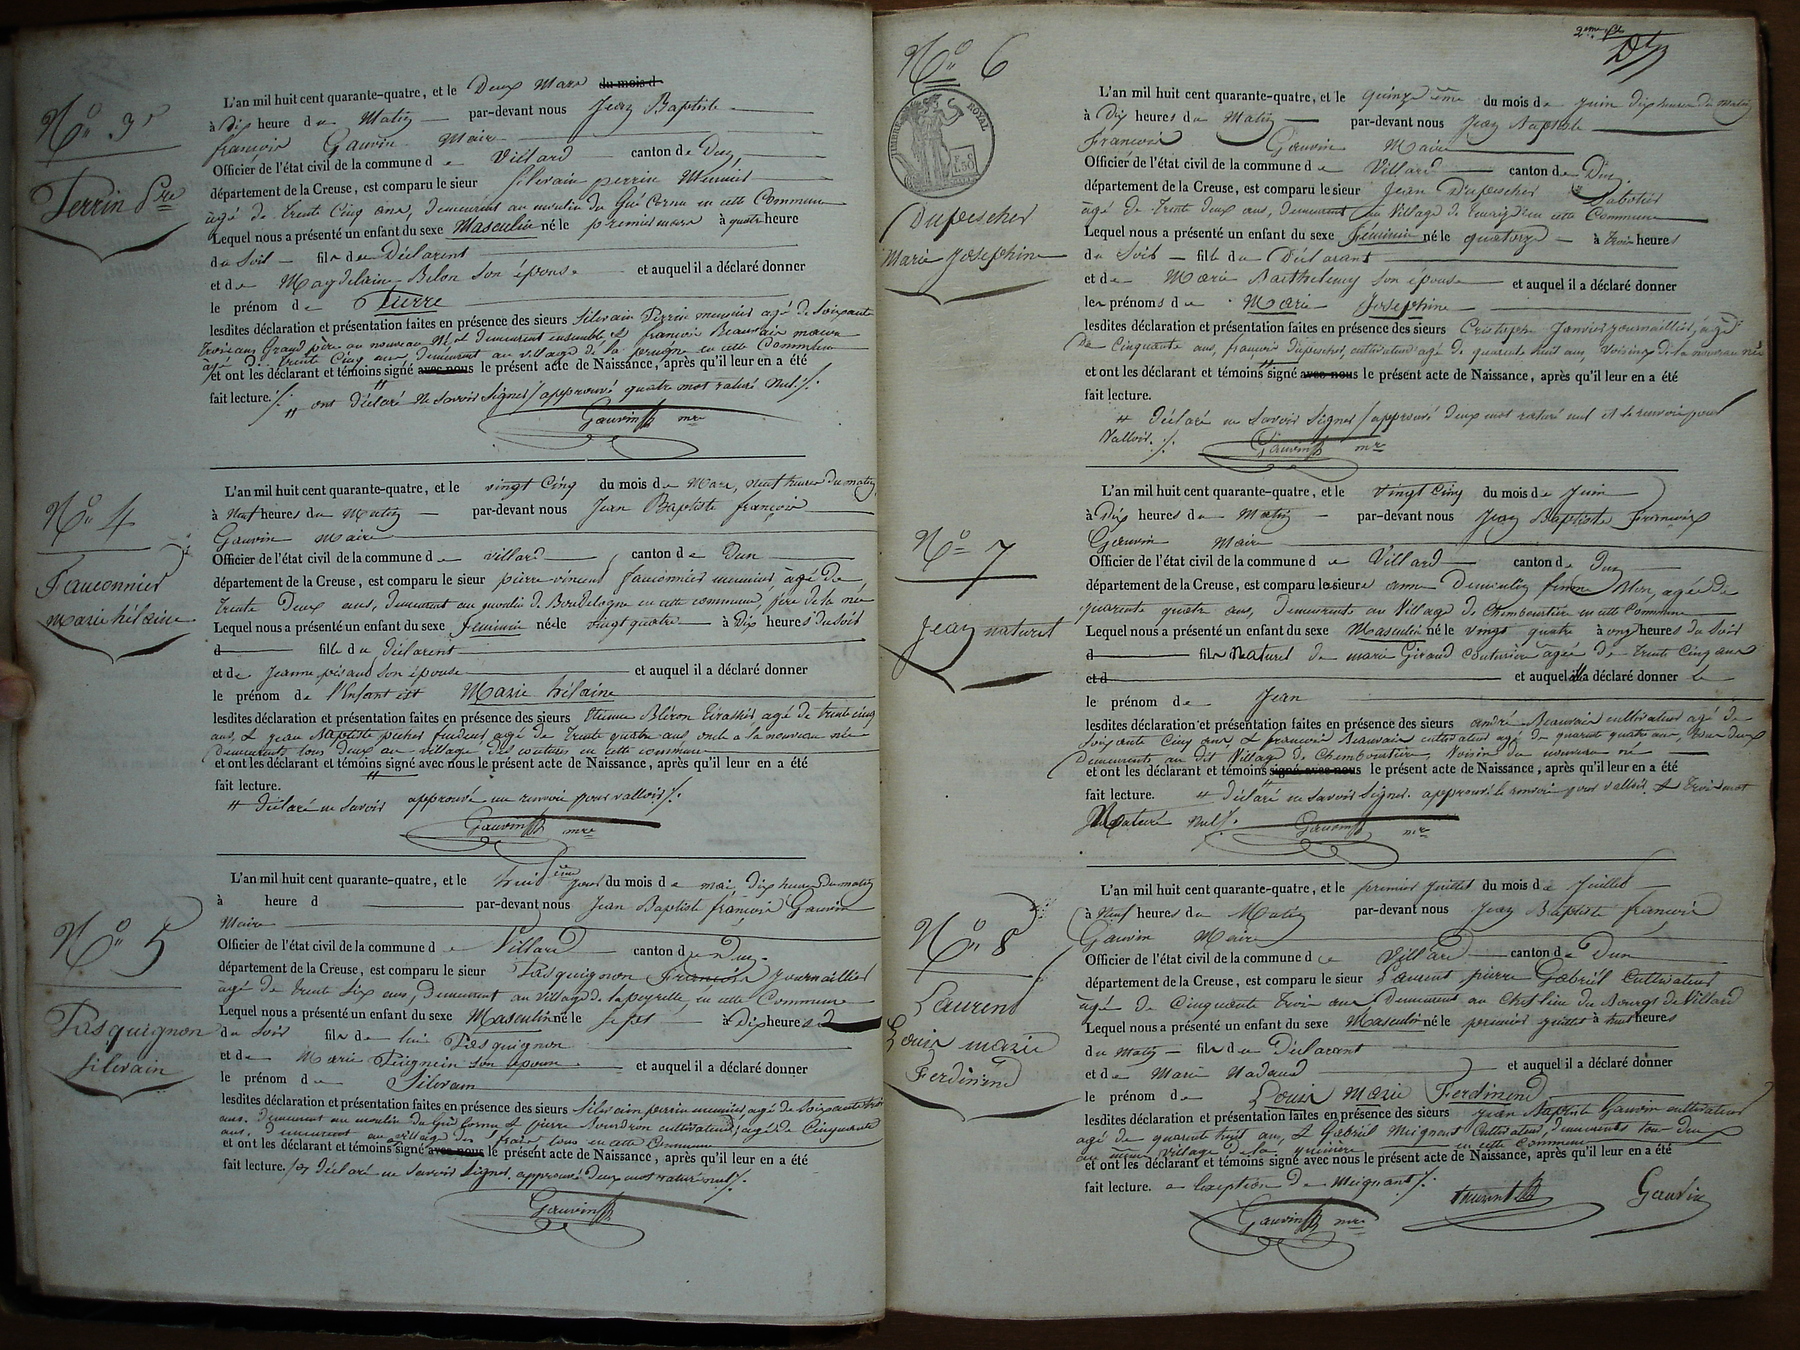 N° 3
Perrin Pre
L'an mil huit cent quarante-quatre, et le Deux Mars du mois d
à Dix heure du Matin par-devant nous Jean Baptiste
françois Gauvin Maire
Officier de l'état civil de la commune de Villard canton de Dun,
département de la Creuse, est comparu le sieur Silvain perrin Meunier
agé de trente Cinq ans, demeurant au moulin du Gué Cornu en cette Commune
Lequel nous a présenté un enfant du sexe Masculin né le premier mars à quatre heure
du Soir fils du Déclarent
et de Magdelaine Belon Son épouse et auquel il a déclaré donner
le prénom de Pierre
lesdites déclaration et présentation faites en présence des sieurs Silvain Perrin meunier agé de Soixante
trois ans Grand père au nouveau Né, et demeurent ensemble et françois Beauvais
âgé de trente Cinq ans, demeurant au village de la en cette Commune
et ont les déclarant et témoins signé avec nous le présent acte de Naissance, après qu'il leur en a été
fait lecture./. ont déclaré ne Savoir Signer / approuvé quatre mot raturé Nul /.
Gauvin mre
N° 4
Fauconnier
Marie hélaine
L'an mil huit cent quarante-quatre, et le vingt Cinq du mois de Mars, neuf heures du matin
à Neuf heures du Matin par-devant nous Jean Baptiste françois
Gauvin maire
Officier de l'état civil de la commune de villard canton de Dun
département de la Creuse, est comparu le sieur pierre vincent fauconnier meunier âgé de
trente Deux ans, demeurant au moulin de Bordelogne en cette commune, père de la née
Lequel nous a présenté un enfant du sexe féminin né le vingt quatre à Dix heures du Soir
d fille du déclarent
et de Jeanne Son épouse et auquel il a déclaré donner
le prénom de l'Enfant est Marie hélaine
lesdites déclaration et présentation faites en présence des sieurs Etienne agé de trente cinq
ans, & jean Baptiste agé de trente quatre ans oncle a la nouveau née
Demeurents tous deux au village des coutures en cette commune
et ont les déclarant et témoins signé avec nous le présent acte de Naissance, après qu'il leur en a été
fait lecture.
déclaré ne Savoir approuvé un renvoi pour valloir /.
Gauvin mre
N° 5
Pasquignon
Silvain
L'an mil huit cent quarante-quatre, et le huit ième jour du mois de mai, dix heures du matin
à heure d par-devant nous Jean Baptiste françois Gauvin
Maire
Officier de l'état civil de la commune de Villard canton de Dun
département de la Creuse, est comparu le sieur Pasquignon François journaillier
agé de trente Six ans, Demeurent au village de lapeyrelle, en cette Commune
Lequel nous a présenté un enfant du sexe Masculin né le Sept à Dix heures d
du Soir fils de lui Pasquignon
et de Marie Son épouse et auquel il a déclaré donner
le prénom de Silvain
lesdites déclaration et présentation faites en présence des sieurs Silvain perrin meunier, agé de Soixante trois
ans, demeurant au moulin du Gué Cornu & pierre cultivateur, agé de Cinquante
ans, demeurent au village des tous en cette Commune
et ont les déclarant et témoins signé avec nous le présent acte de Naissance, après qu'il leur en a été
fait lecture. déclaré ne Savoir Signer. approuvé Deux mot raturé nul /.
Gauvin
2eme
N° 6
TIMBRE ROYAL
Dupescher
Marie Josephine
L'an mil huit cent quarante-quatre, et le quinze ème du mois de Juin dix heures du Matin
à Dix heures du Matin par-devant nous Jean Baptiste
François Gauvin Maire
Officier de l'état civil de la commune de Villard canton de Dun
département de la Creuse, est comparu le sieur Jean Dupescher Sabotier
agé de trente deux ans, demeurant au Village de en cette Commune
Lequel nous a présenté un enfant du sexe féminin né le quatorze à trois heures
du Soir fille du Déclarant
et de Marie Barthelemy Son épouse et auquel il a déclaré donner
les prénoms de Marie Josephine
lesdites déclaration et présentation faites en présence des sieurs Cristophe Janvier journaillier, agé
de Cinquante ans, françois dupescher, cultivateur agé de quarente huit ans, Voisins de la nouveau née
et ont les déclarant et témoins signé avec nous le présent acte de Naissance, après qu'il leur en a été
fait lecture.
déclaré ne Savoir Signer / approuvé Deux mot raturé nul et le renvoie pour
Valloir. /.
Gauvin mre
N° 7
Jean naturel
L'an mil huit cent quarante-quatre, et le Vingt Cinq du mois de Juin
à Dix heures du Matin par-devant nous Jean Baptiste François
Gauvin Maire
Officier de l'état civil de la commune de Villard canton de Dun
département de la Creuse, est comparu le sieure anne femme agée de
quarente quatre ans, Demeurente au Village de Chemboutier en cette Commune
Lequel nous a présenté un enfant du sexe Masculin né le vingt quatre à onze heures du Soir
d fils Naturel de marie Giraud couturière agée de trente Cinq ans
et d et auquel il a déclaré donner le
le prénom de Jean
lesdites déclaration et présentation faites en présence des sieurs andré Beauvais cultivateur agé de
Soixante Cinq ans, & francois Beauvais cultivateur agé de quarente quatre ans, tous deux
Demeurents au dit Village de Chemboutier, Voisins du nouveau né
et ont les déclarant et témoins signé avec nous le présent acte de Naissance, après qu'il leur en a été
fait lecture. déclaré ne savoir signer. approuvé le renvoie pour valloir. & trois mot
Raturé Nul /. Gauvin mre
N° 8
Laurent
Louis marie
Ferdinend
L'an mil huit cent quarante-quatre, et le premier Juillet du mois de Juillet
à Neuf heures du Matin par-devant nous Jean Baptiste françois
Gauvin Maire
Officier de l'état civil de la commune de Villard canton de Dun
département de la Creuse, est comparu le sieur Laurent pierre Gabriel Cultivateur
agé de Cinquante trois ans Demeurent au Chef lieu du Bourg de Villard
Lequel nous a présenté un enfant du sexe Masculin né le premier juillet à huit heures
du Matin fils du Déclarant
et de Marie Nadaud et auquel il a déclaré donner
le prénom de Louis Marie Ferdinend
lesdites déclaration et présentation faites en présence des sieurs jean Baptiste Gauvin cultivateur
agé de quarente huit ans, & Gabriel Meignant Cultivateur, demeurents tous deux
au village de la en cette Commune
et ont les déclarant et témoins signé avec nous le présent acte de Naissance, après qu'il leur en a été
fait lecture. a lexception de Meignant /.
Gauvin mre Laurent Gauvin